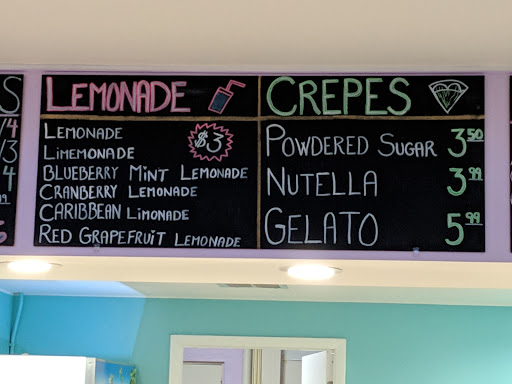 S
/4
/3
4
LEMONADE
$3
LEMONADE
LIMEMONADE
BLUEBERRY MINT LEMONADE
CRANBERRY LEMONADE
CARIBBEAN LIMONADE
RED GRAPEFRUIT LEMONADE
CREPES
POWDERED SUGAR 3.50
NUTELLA 3.99
GELATO 5.99